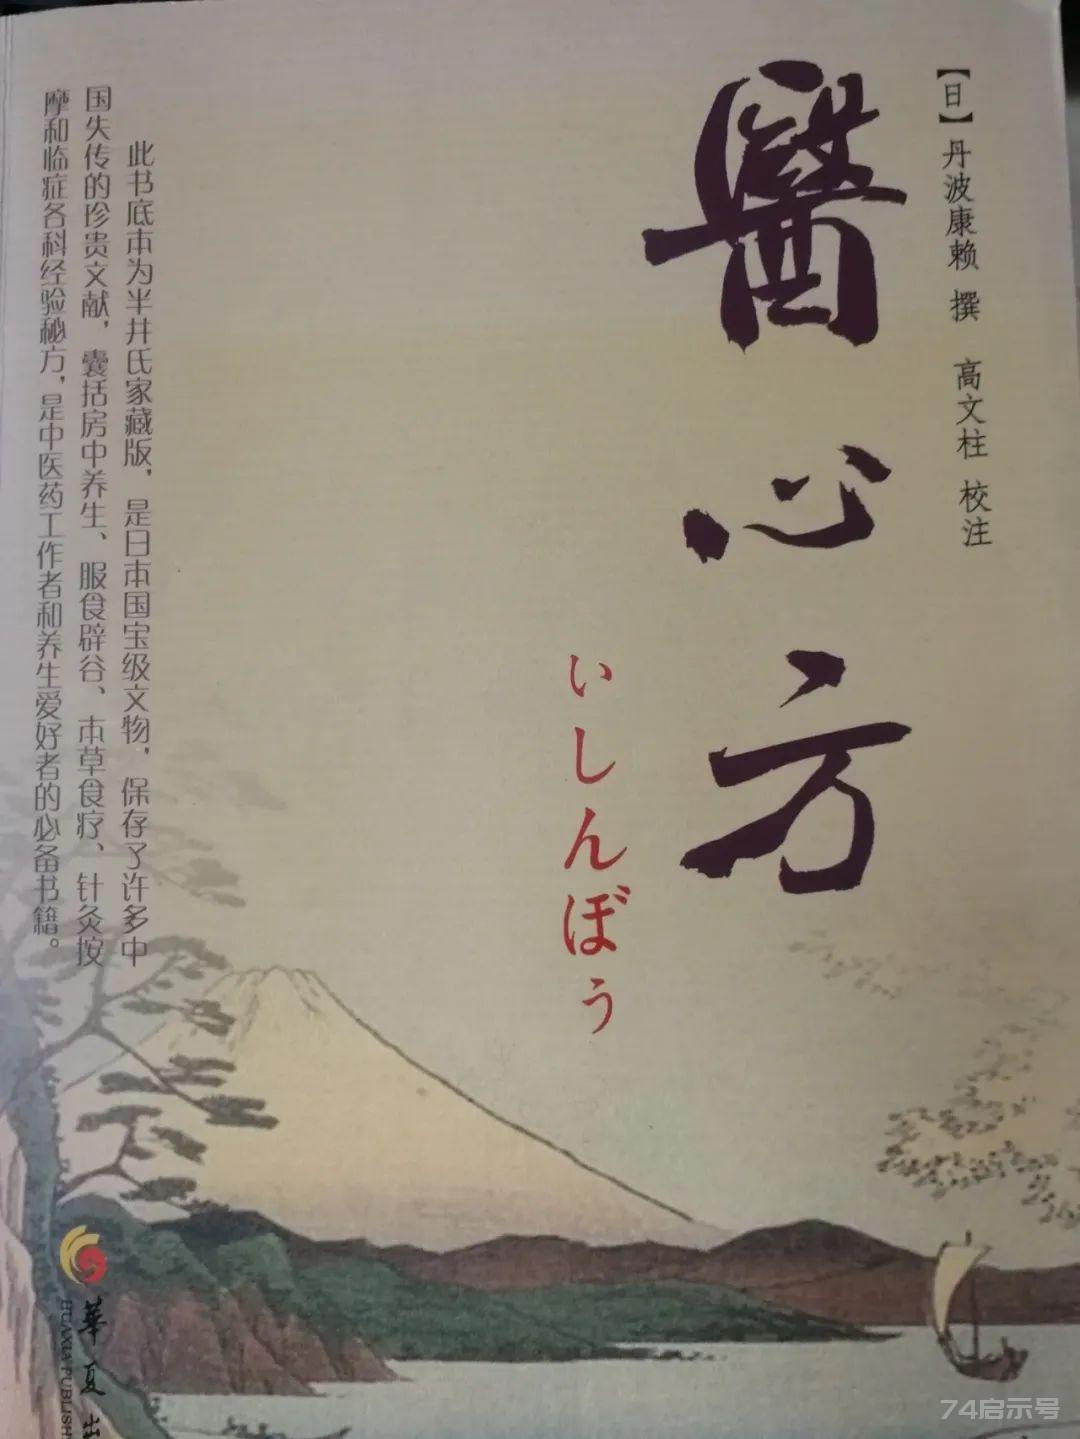 【日】丹波康赖 撰 高文柱 校注
醫心方
いしんぼう
此书底本为半井氏家藏版，是日本国宝级文物，保存了许多中
国失传的珍贵文献，囊括房中养生、服食辟谷、本草食疗、针灸按
摩和临症各科经验秘方，是中医药工作者和养生爱好者的必备书籍。
華夏出
HUAXIA PUBLISH
74启示号